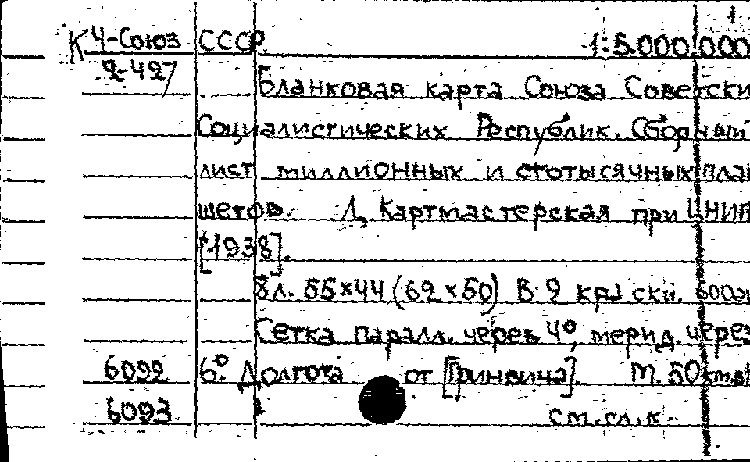 К4-Союз СССР. 1:5.000.000
2-427 Бланковая карта Союза Советски
Социалистических Республик. Сборный
лист миллионных и стотысячных план
шетов. Л, Картмастерская при ЦНИИ
[1938].
8л. 55×44 (62×50) В 2 краски.
Сетка паралл. через 4°, мерид. через
6092 6°. Долгота от [Гринвича].
6093 см.сл.к.